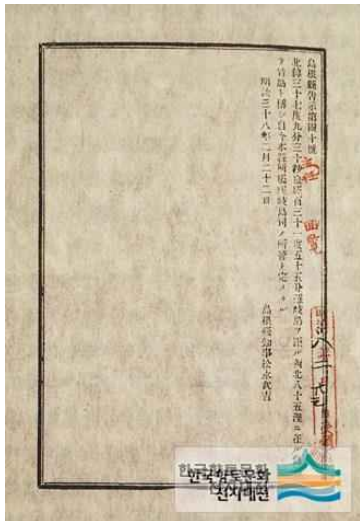 島根縣告示第四十號
北緯三十七度九分三十秒東經百三十一度五十五分隱岐島ヲ距ル西北八十五浬ニ在ル
ヲ竹島ト稱シ自今本縣所屬隱岐島司ノ所管ト定メラル
明治三十八年二月二十二日
島根縣知事松永武吉
回覽
한국향토문화
전자대전